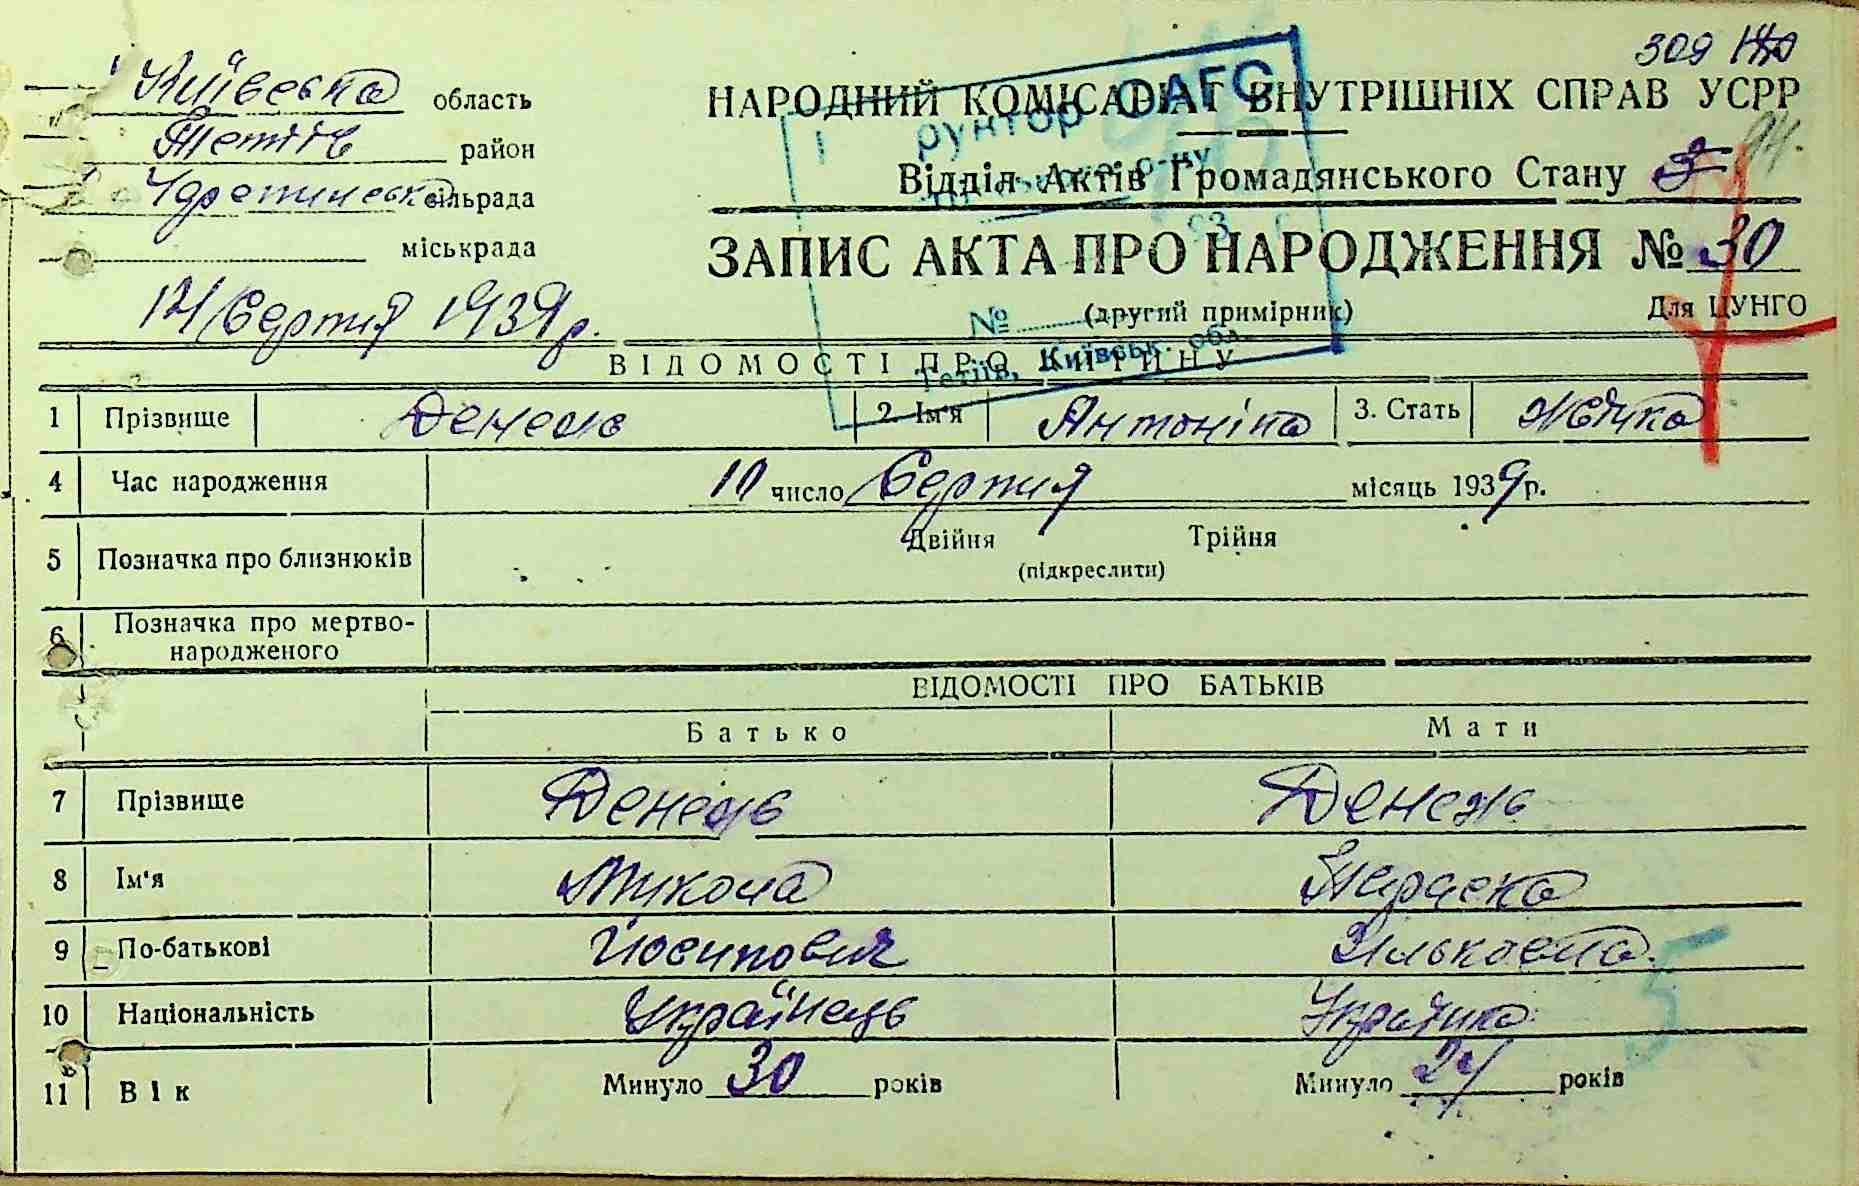 309
Київська область
НАРОДНИЙ КОМІСАРІАТ ВНУТРІШНІХ СПРАВ УСРР
Тетіїв район
Відділ Актів Громадянського Стану
94.
сільрада
міськрада
ЗАПИС АКТА ПРО НАРОДЖЕННЯ № 30
(другий примірник)
Для ЦУНГО
14/Серпня 1939 р.
ОАГС
р-ну
№
Тетіїв, Київськ. обл.
ВІДОМОСТІ ПРО ДИТИНУ
1 Прізвище Денеж 2. Ім'я Антоніна 3. Стать Жінка
4 Час народження 10 число Серпня місяць 1939 р.
5 Позначка про близнюків Двійня Трійня
(підкреслити)
6 Позначка про мертво-
народженого
ВІДОМОСТІ ПРО БАТЬКІВ
Батько Мати
7 Прізвище Денеж Денеж
8 Ім'я Микола Параска
9 По-батькові Йосипович
10 Національність Українець Українка
11 Вік Минуло 30 років Минуло 24 років
5